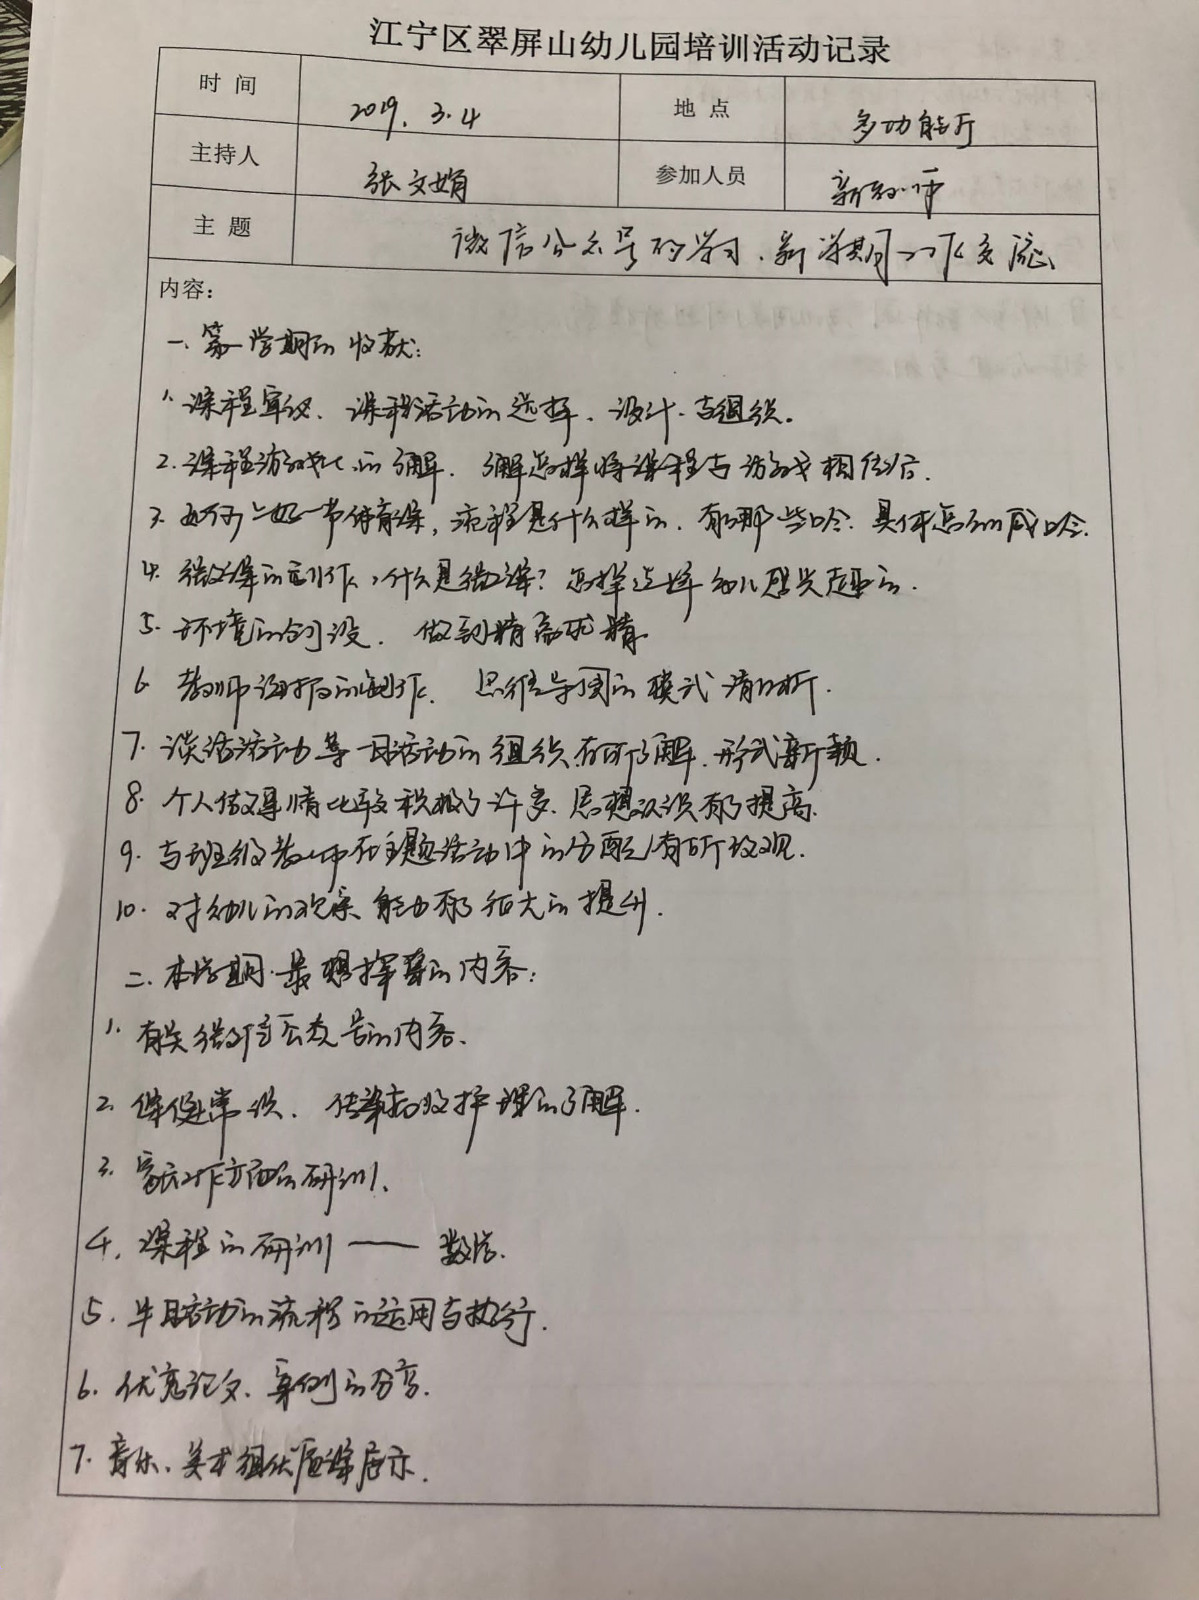 江宁区翠屏山幼儿园培训活动记录
时 间 2019. 3.4 地 点 多功能厅
主持人 张文娟 参加人员 新教师
主 题 微信公众号的学习、新学期工作交流
内容：
一、第一学期的收获：
1、课程审议、课程活动的选择、设计、与组织。
2.课程游戏化的了解.了解怎样将课程与游戏相结合.
3. 如何上好一节体育课，流程是什么样的.有哪些口令.具体怎么喊口令.
4. 微课的制作，什么是微课？怎样选择幼儿感兴趣的.
5. 环境的创设. 做到精益求精
6. 教师 的制作. 思维导图的模式清晰.
7. 谈话活动等一日活动的组织有所了解.形式新颖.
8. 个人做事情比较积极了许多.思想认识有了提高.
9. 与班级教师在主题活动中的分配有所改观.
10. 对幼儿的观察能力有了很大的提升.
二、本学期最想探索的内容：
1、有关微信公众号的内容.
2. 保健常识、传染病及护理的了解.
3. 家长工作方面的研训、
4. 课程的研训——数学.
5. 半日活动的流程的运用与执行.
6. 优秀论文、案例的分享.
7. 音乐、美术组优质课展示.